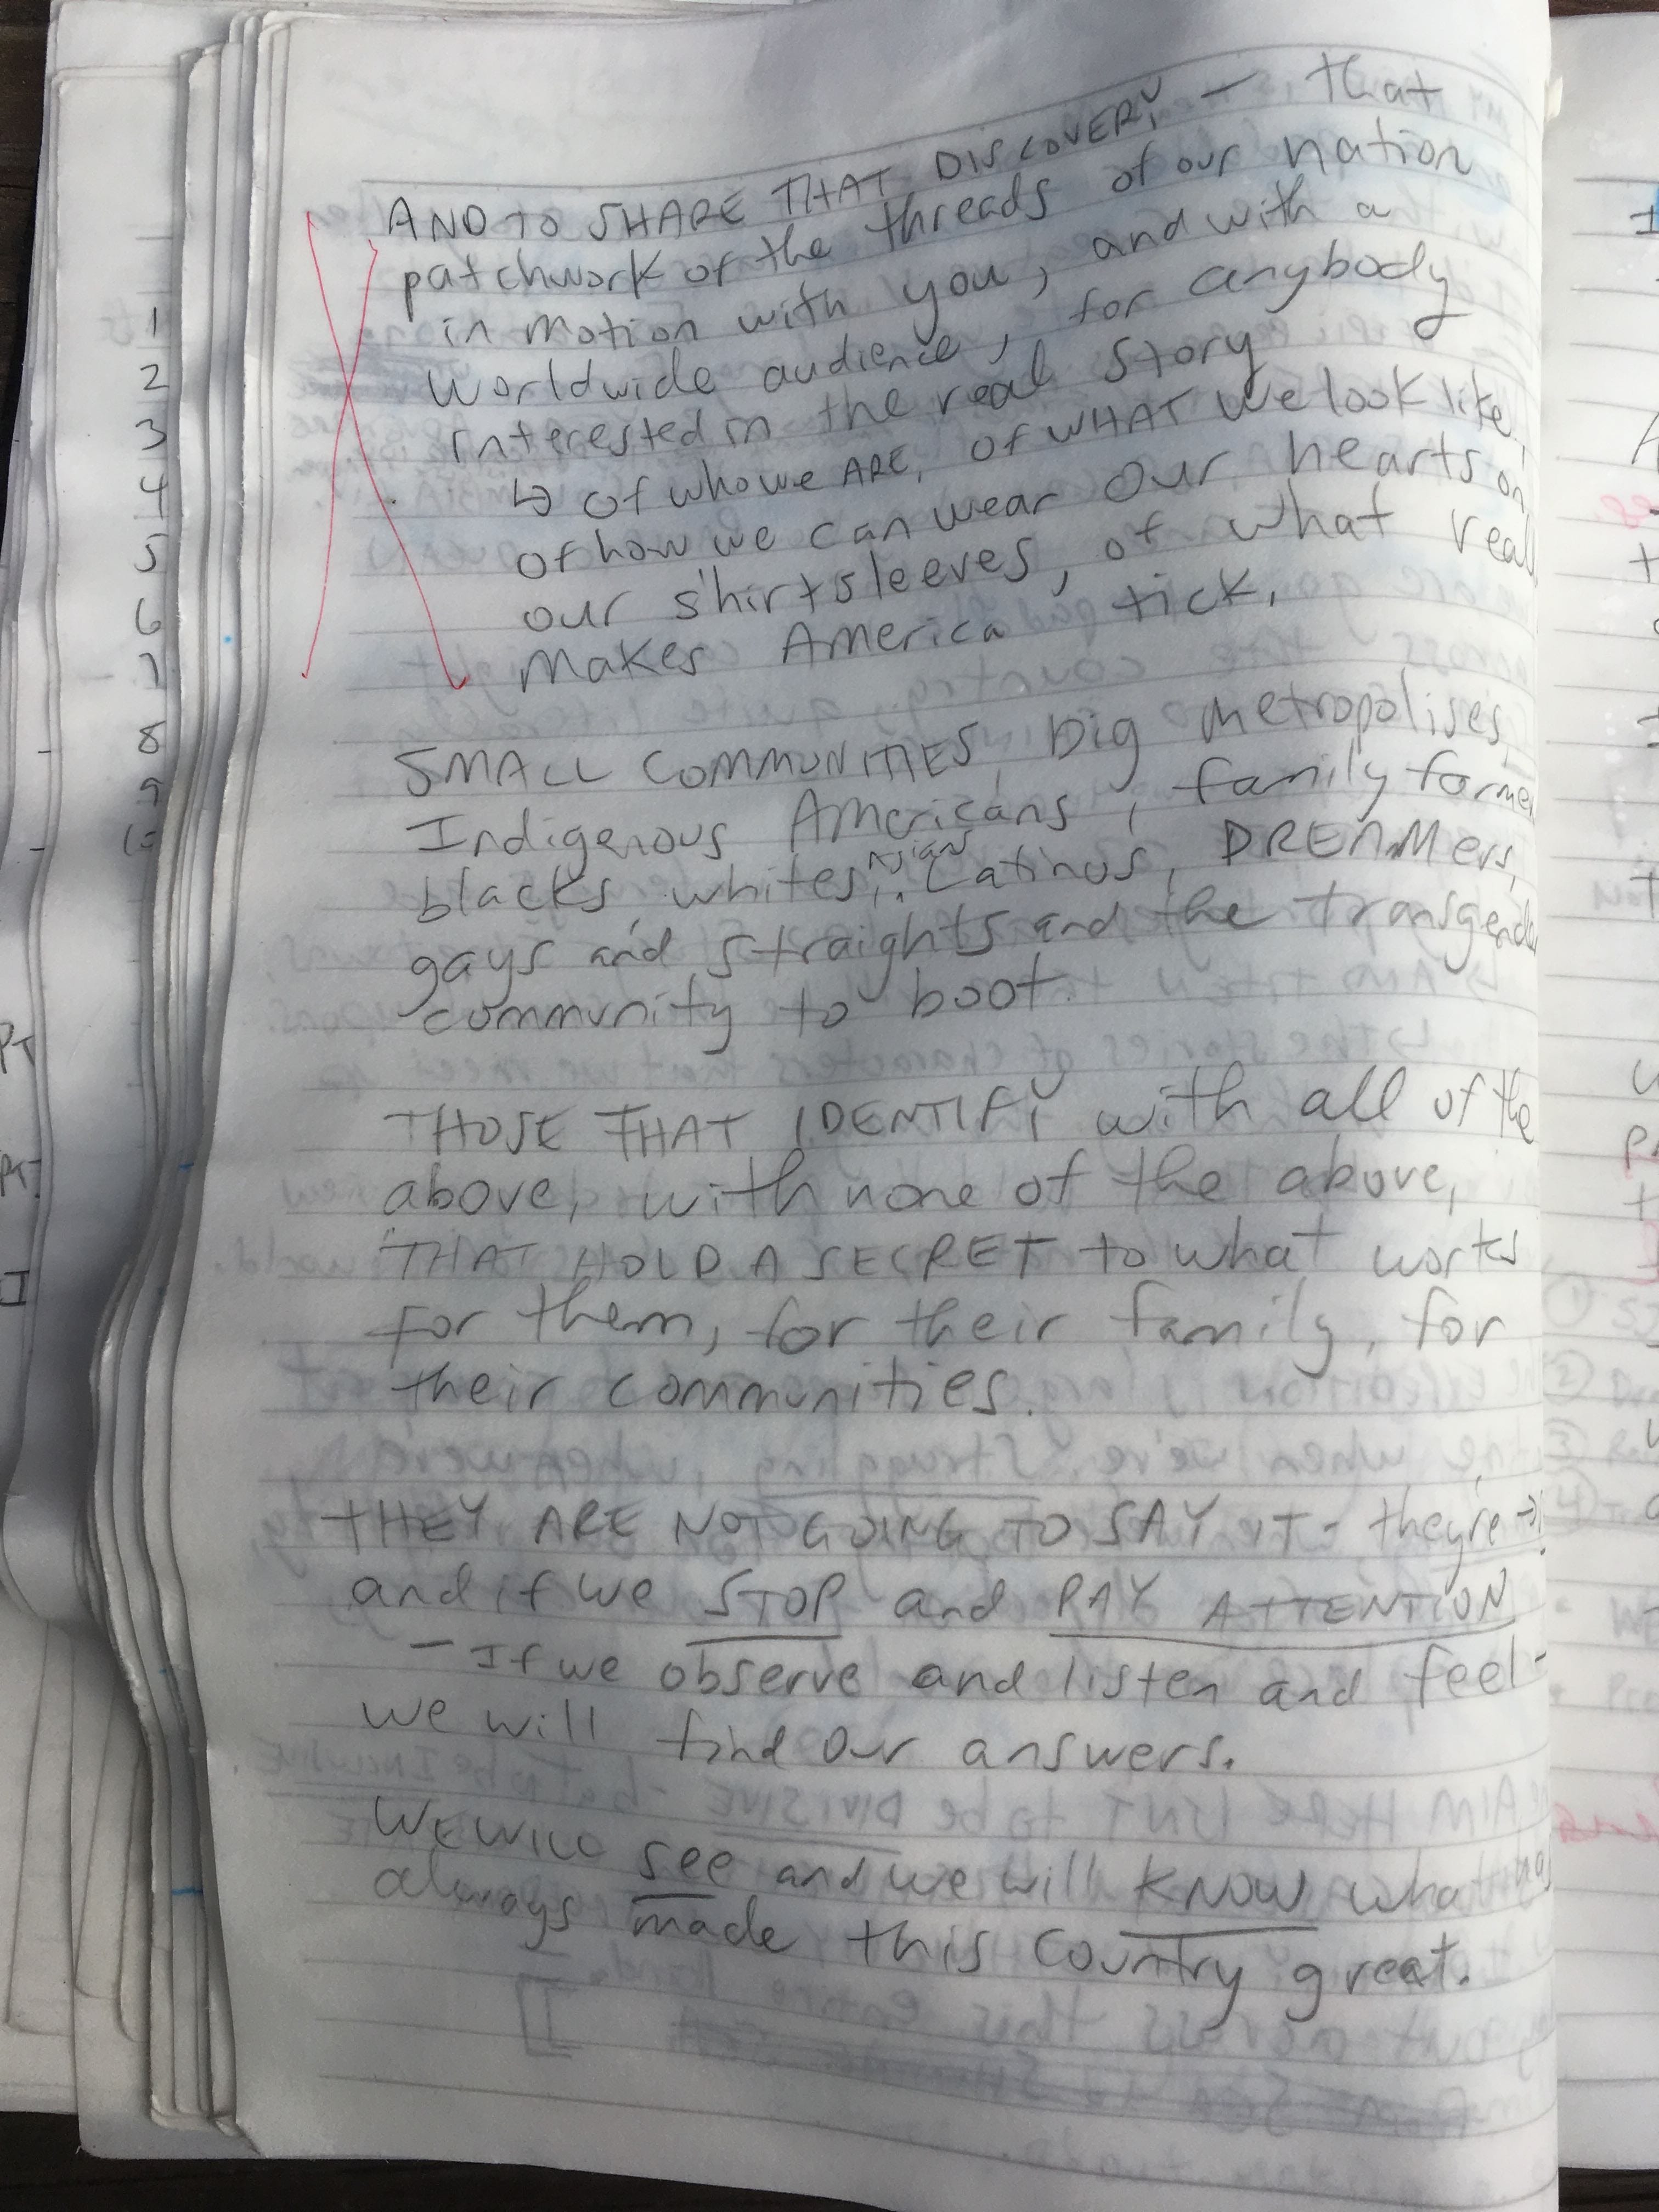 AND TO SHARE THAT DISCOVERY, - that
patchwork of the threads of our nation
in motion with you, and with a
worldwide audience, for anybody
interested in the real story
↳ of who we ARE, of WHAT we look like,
of how we can wear our hearts on
our shirtsleeves, of what real
makes America tick.
SMALL COMMUNITIES, big metropolises,
Indigenous Americans, family farme
blacks whites, Asian, Latinos, DREAMers,
gays and straights and the transgende
community to boot.
THOSE THAT IDENTIFY with all of the
above, with none of the above,
THAT HOLD A SECRET to what works
for them, for their family, for
their communities.
THEY ARE NOT GOING TO SAY IT - they're →
and if we STOP and PAY ATTENTION
- If we observe and listen and feel -
we will find our answers.
WE WILL see and we will KNOW what has
always made this country great.
1
2
3
4
5
6
7
8
9
10